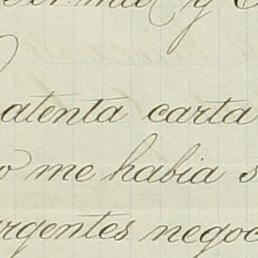 y
atenta carta
o me habia s
rgentes negoc